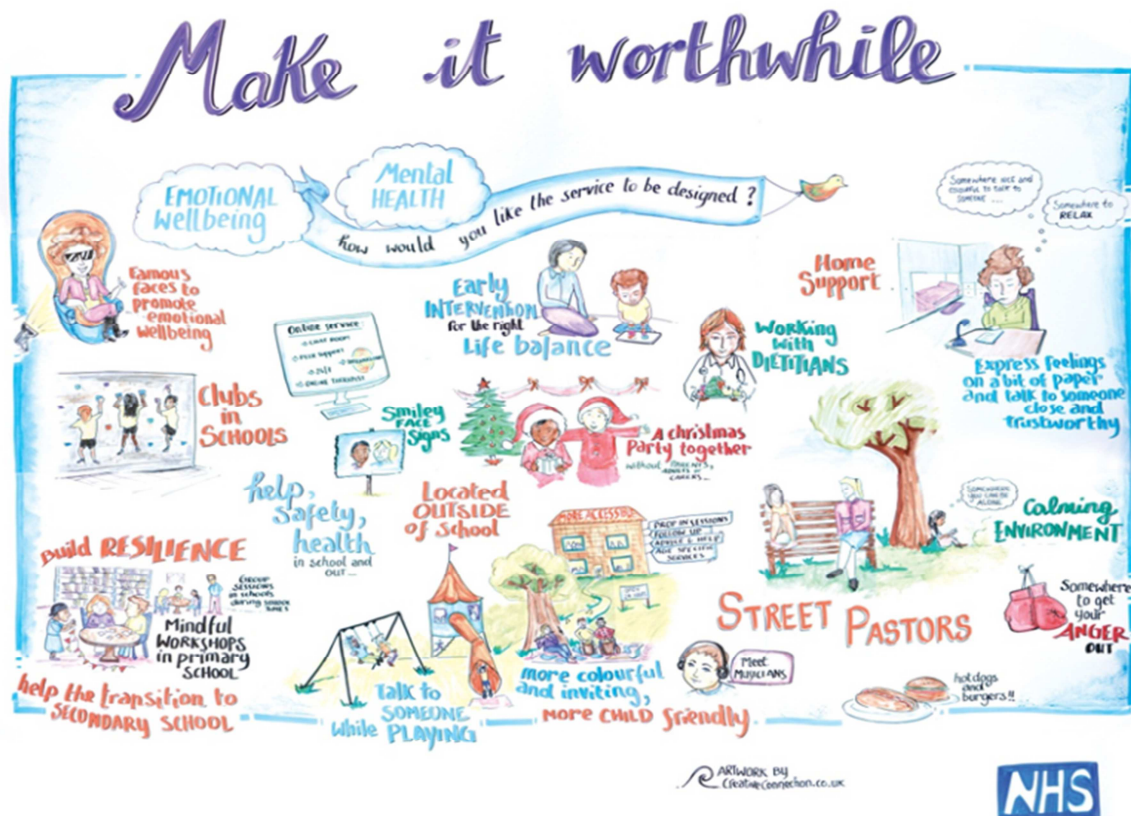 Make it worthwhile
EMOTIONAL
Wellbeing
Mental
HEALTH
how would you like the service to be designed ?
Somewhere nice and
to talk to
someone ...
Somewhere to
RELAX
Famous
faces to
promote
emotional
wellbeing
Early
INTERVENTION
for the right
Life balance
Home
Support
Online service:
CHAT ROOM
PEER SUPPORT
24/7
ONLINE THERAPIST
Working
with
DIETITIANS
Express feelings
on a bit of paper
and talk to someone
close and
trustworthy
Clubs
in
SCHOOLS
Smiley
FACE
Signs
A christmas
Party together
without PARENTS,
ADULTS or
CAREERS...
help,
Safety,
health
in school and
out...
Located
OUTSIDE
of School
MORE ACCESSIBLE
DROP IN SESSIONS
FOLLOW UP
ADVICE & HELP
AGE SPECIFIC
SERVICES
SOMEWHERE
YOU CAN BE
ALONE
Calming
ENVIRONMENT
Build RESILIENCE
GROUP
SESSIONS
in schools
during
Mindful
WORKSHOPS
in primary
SCHOOL
help the transition to
SECONDARY SCHOOL
Talk to
SOMEONE
while PLAYING
more colourful
and inviting,
more CHILD friendly
Meet
MUSICIANS
STREET PASTORS
Somewhere
to get
your
ANGER
OUT
hot dogs
and
burgers!!
ARTWORK BY
creativeconnection.co.uk
NHS